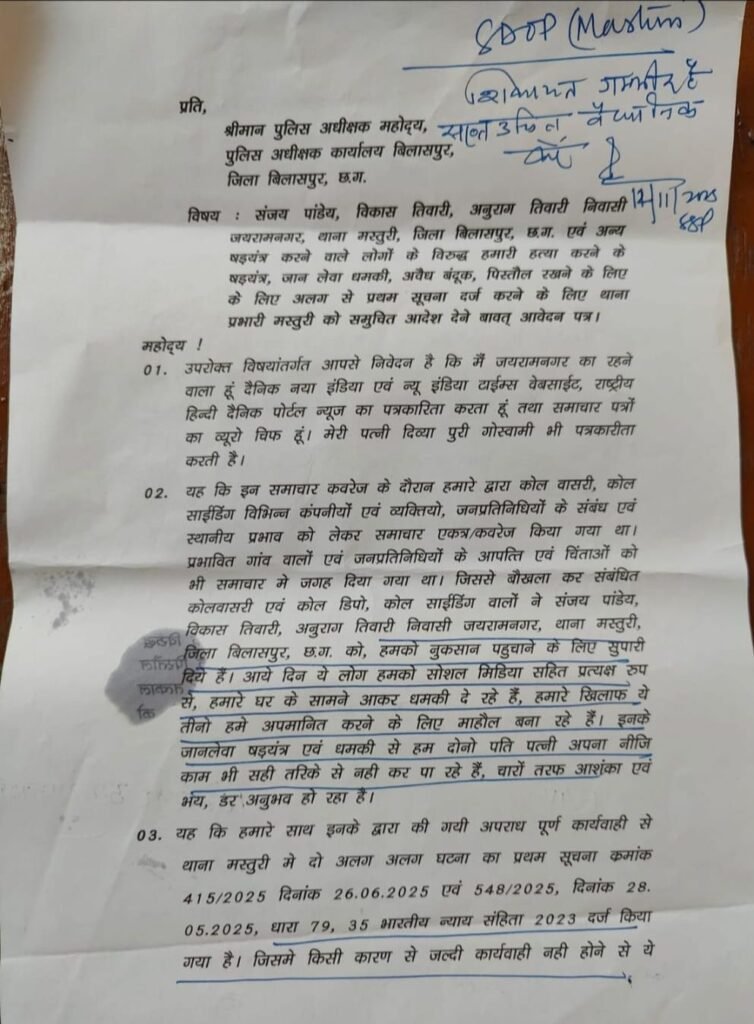 SDOP (Masturi)
शिकायत गम्भीर है
उचित वैधानिक
करें
12/11/2025
SSP
प्रति,
श्रीमान पुलिस अधीक्षक महोद्य,
पुलिस अधीक्षक कार्यालय बिलासपुर,
जिला बिलासपुर, छ.ग.
विषय : संजय पांडेय, विकास तिवारी, अनुराग तिवारी निवासी
जयरामनगर, थाना मस्तुरी, जिला बिलासपुर, छ.ग. एवं अन्य
षड़यंत्र करने वाले लोगों के विरुद्ध हमारी हत्या करने के
षड़यंत्र, जान लेवा धमकी, अवैध बंदूक, पिस्तौल रखने के लिए
के लिए अलग से प्रथम सूचना दर्ज करने के लिए थाना
प्रभारी मस्तुरी को समुचित आदेश देने बावत् आवेदन पत्र।
महोद्य !
01. उपरोक्त विषयांतर्गत आपसे निवेदन है कि मैं जयरामनगर का रहने
वाला हूं दैनिक नया इंडिया एवं न्यू इंडिया टाईम्स वेबसाईट, राष्ट्रीय
हिन्दी दैनिक पोर्टल न्यूज का पत्रकारिता करता हूं तथा समाचार पत्रों
का ब्यूरो चिफ हूं। मेरी पत्नी दिव्या पुरी गोस्वामी भी पत्रकारीता
करती है।
02. यह कि इन समाचार कवरेज के दौरान हमारे द्वारा कोल वासरी, कोल
साईडिंग विभिन्न कंपनीयों एवं व्यक्तियो, जनप्रतिनिधियों के संबंध एवं
स्थानीय प्रभाव को लेकर समाचार एकत्र/कवरेज किया गया था।
प्रभावित गांव वालों एवं जनप्रतिनिधियों के आपत्ति एवं चिंताओं को
भी समाचार मे जगह दिया गया था। जिससे बौखला कर संबंधित
कोलवासरी एवं कोल डिपो, कोल साईडिंग वालों ने संजय पांडेय,
विकास तिवारी, अनुराग तिवारी निवासी जयरामनगर, थाना मस्तुरी,
जिला बिलासपुर, छ.ग. को, हमको नुकसान पहुचाने के लिए सुपारी
दिये हैं। आये दिन ये लोग हमको सोशल मिडिया सहित प्रत्यक्ष रुप
से, हमारे घर के सामने आकर धमकी दे रहे हैं, हमारे खिलाफ ये
तीनो हमे अपमानित करने के लिए माहौल बना रहे हैं। इनके
जानलेवा षड़यंत्र एवं धमकी से हम दोनो पति पत्नी अपना नीजि
काम भी सही तरिके से नही कर पा रहे हैं, चारों तरफ आशंका एवं
भय, डर अनुभव हो रहा है।
03. यह कि हमारे साथ इनके द्वारा की गयी अपराध पूर्ण कार्यवाही से
थाना मस्तुरी मे दो अलग अलग घटना का प्रथम सूचना कमांक
415/2025 दिनांक 26.06.2025 एवं 548/2025, दिनांक 28.
05.2025, धारा 79, 35 भारतीय न्याय संहिता 2023 दर्ज किया
गया है। जिसमे किसी कारण से जल्दी कार्यवाही नही होने से ये